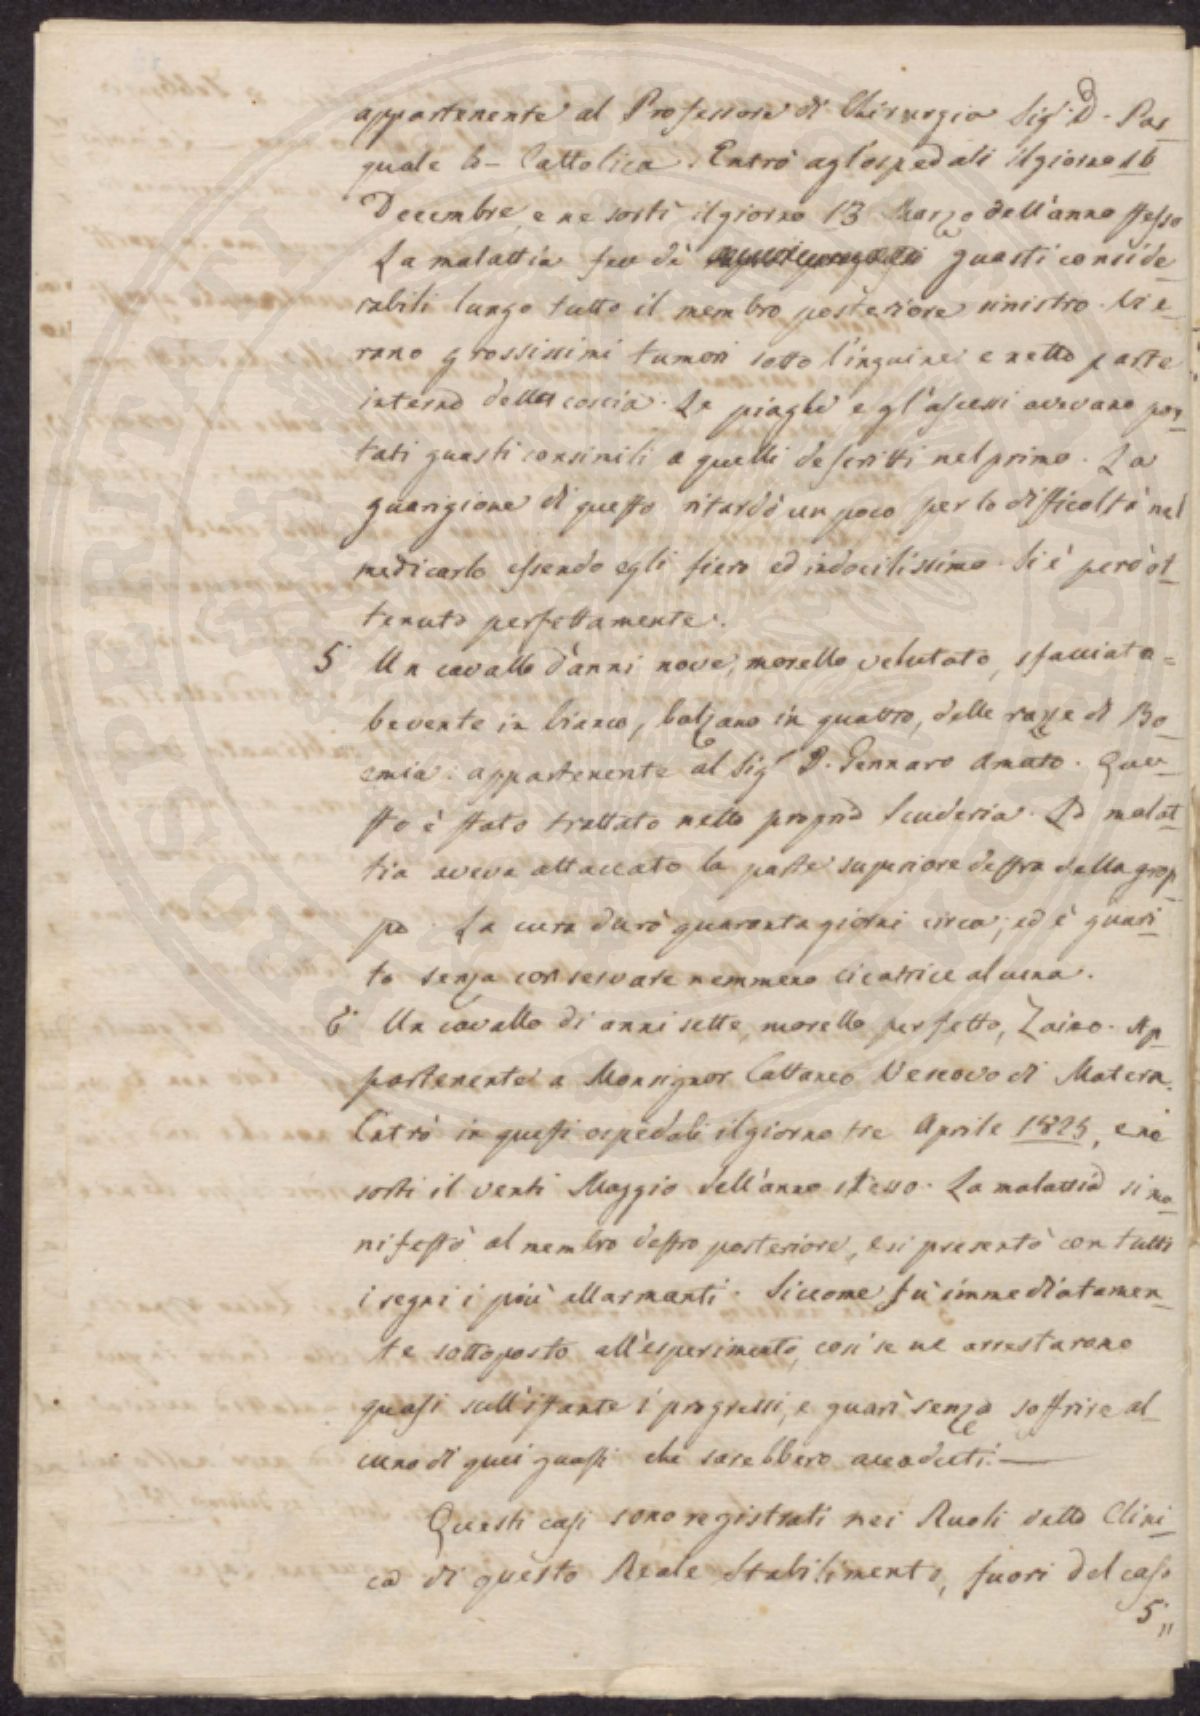 appartenente al Professore di Chirurgia Sig.r D. Pas_
quale La Cattolica. Entrò agl'ospedali il giorno 16
Decembre, e ne sortì il giorno 13 Marzo dell'anno stesso
La malattia fece dè guasti conside
rabili lungo tutto il membro posteriore sinistro. Vi e_
rano grossissimi tumori sotto l'inguine e nella parte
interna della coscia. Le piaghe e gl'ascessi avevano por_
tati guasti consimili a quelli descritti nel primo. La
guarigione di questo ritardò un poco per la difficoltà nel
medicarlo essendo egli fiero ed indocilissimo. Si è però ot_
tenuta perfettamente.
5° Un cavallo d'anni nove, morello velutato, sfacciato =
bevente in bianco, balzano in quattro, delle razze di Bo_
emia: appartenente al Sig.r D. Gennaro Amato. Que_
sto è stato trattato nella propria Scuderia. La malat_
tia aveva attaccato la parte superiore destra della grop_
pa. La cura durò quaranta giorni circa; ed è guari_
to senza conservare nemmeno cicatrice alcuna.
6° Un cavallo di anni sette, morello perfetto, Zaino. Ap_
partenente a Monsignor Cattaneo Vescovo di Matera.
Entrò in questi ospedali il giorno tre Aprile 1825, e ne
sortì il venti Maggio dell'anno stesso. La malattia si ma_
nifestò al membro destro posteriore, e si presentò con tutti
i segni i più allarmanti. Siccome fù immediatamen_
te sottoposto all'esperimento, così se ne arrestarono
quasi sull'istante i progressi, e guarì senza soffrire al_
cuno di quei guasti che sarebbero accaduti. —
Questi casi sono registrati nei Ruoli della Clini_
ca di questo Reale Stabilimento, fuori del caso
5„
PROSPERITATI PUBLICAE